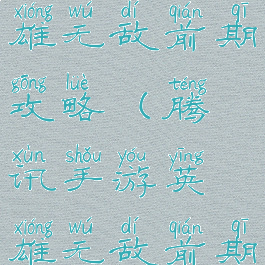 xióng wú dí qián qī
雄无敌前期
gōng lüè téng
攻略（腾
xùn shǒu yóu yīng
讯手游英
xióng wú dí qián qī
雄无敌前期